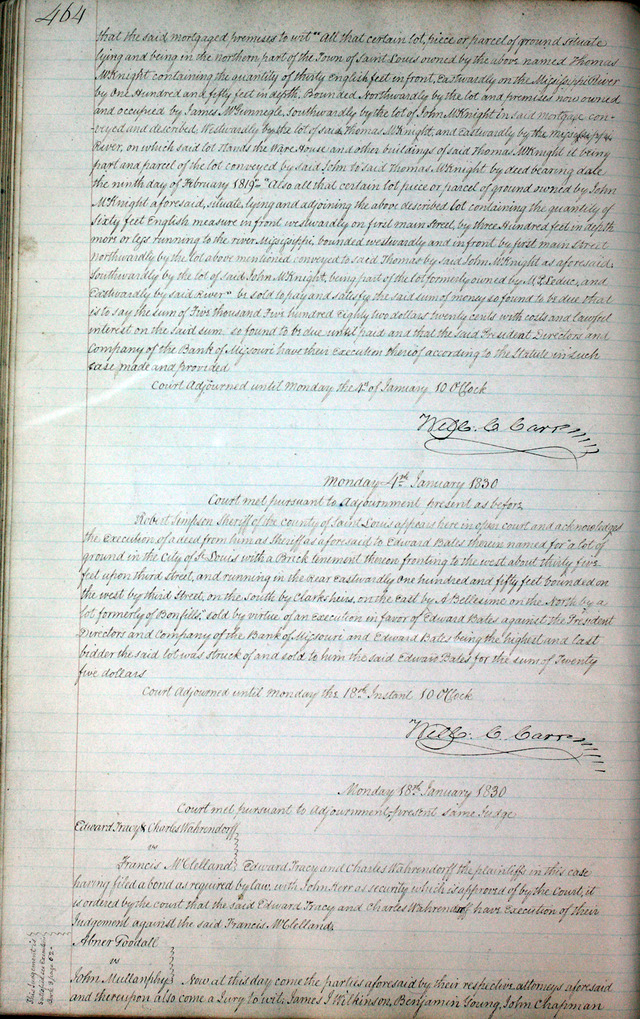 464
that the said mortgaged premises to wit "All that certain lot, piece or parcel of ground situate
lying and being in the northern part of the Town of Saint Louis owned by the above named Thomas
McKnight containing the quantity of thirty English feet in front, Eastwardly on the Mississippi River
by One Hundred and fifty feet in depth. Bounded Northwardly by the lot and premises now owned
and occupied by James McGunnegle, Southwardly by the lot of John McKnight in said mortgage con-
veyed and described, Westwardly by the lot of said Thomas McKnight, and Eastwardly by the Mississippi
River, on which said lot stands the Ware House and other buildings of said Thomas McKnight it being
part and parcel of the lot conveyed by said John to said Thomas McKnight by deed bearing date
the ninth day of February 1819" "Also all that certain lot piece or parcel of ground owned by John
McKnight aforesaid, situate, lying and adjoining the above described lot containing the quantity of
sixty feet English measure in front westwardly on first main street, by three Hundred feet in depth
more or less running to the river Mississippi bounded westwardly and in front by first main street
northwardly by the lot above mentioned conveyed to said Thomas by said John McKnight as aforesaid
Southwardly by the lot of said John McKnight, being part of the lot formerly owned by M. P. Leduc, and
Eastwardly by said River" be sold to pay and satisfy the said sum of money so found to be due that
is to say the sum of Five thousand Five hundred Eighty two dollars Twenty cents with costs and lawful
interest on the said sum so found to be due until paid and that the said President Directors and
Company of the Bank of Missouri have their Execution thereof according to the Statute in such
case made and provided
Court Adjourned until Monday the 4th of January 10 O'Clock
Will. C. Carr
Monday 4th January 1830
Court met pursuant to Adjournment present as before
Robert Simpson Sheriff of the county of Saint Louis appears here in open court and acknowledges
the Execution of a deed from him as Sheriff as aforesaid to Edward Bates therein named for "a lot of
ground in the City of St Louis with a Brick tenement thereon fronting to the west about thirty five
feet upon third street, and running in the rear Eastwardly One hundred and fifty feet bounded on
the west by third Street, on the South by Clarks heirs, on the East by A. Bellesime on the North by a
lot formerly of Bonfills" sold by virtue of an Execution in favor of Edward Bates against the President
Directors and Company of the Bank of Missouri and Edward Bates being the highest and last
bidder the said lot was struck of and sold to him the said Edward Bates for the sum of Twenty
five dollars
Court Adjourned until Monday the 18th Instant 10 O'Clock
Will. C. Carr
Monday 18th January 1830
Court met pursuant to Adjournment, present same Judge
Edward Tracy & Charles Wahrendorff
vs
Francis McClelland Edward Tracy and Charles Wahrendorff the plaintiffs in this case
having filed a bond as required by law, with John Kerr as security which is approved of by the Court, it
is ordered by the court that the said Edward Tracy and Charles Wahrendorff have Execution of their
Judgement against the said Francis McClelland
Abner Goodall
vs
John Mullanphy Now at this day come the parties aforesaid by their respective attorneys aforesaid
and thereupon also come a Jury to wit, James J Wilkinson, Benjamin Young, John Chapman
This Judgement is